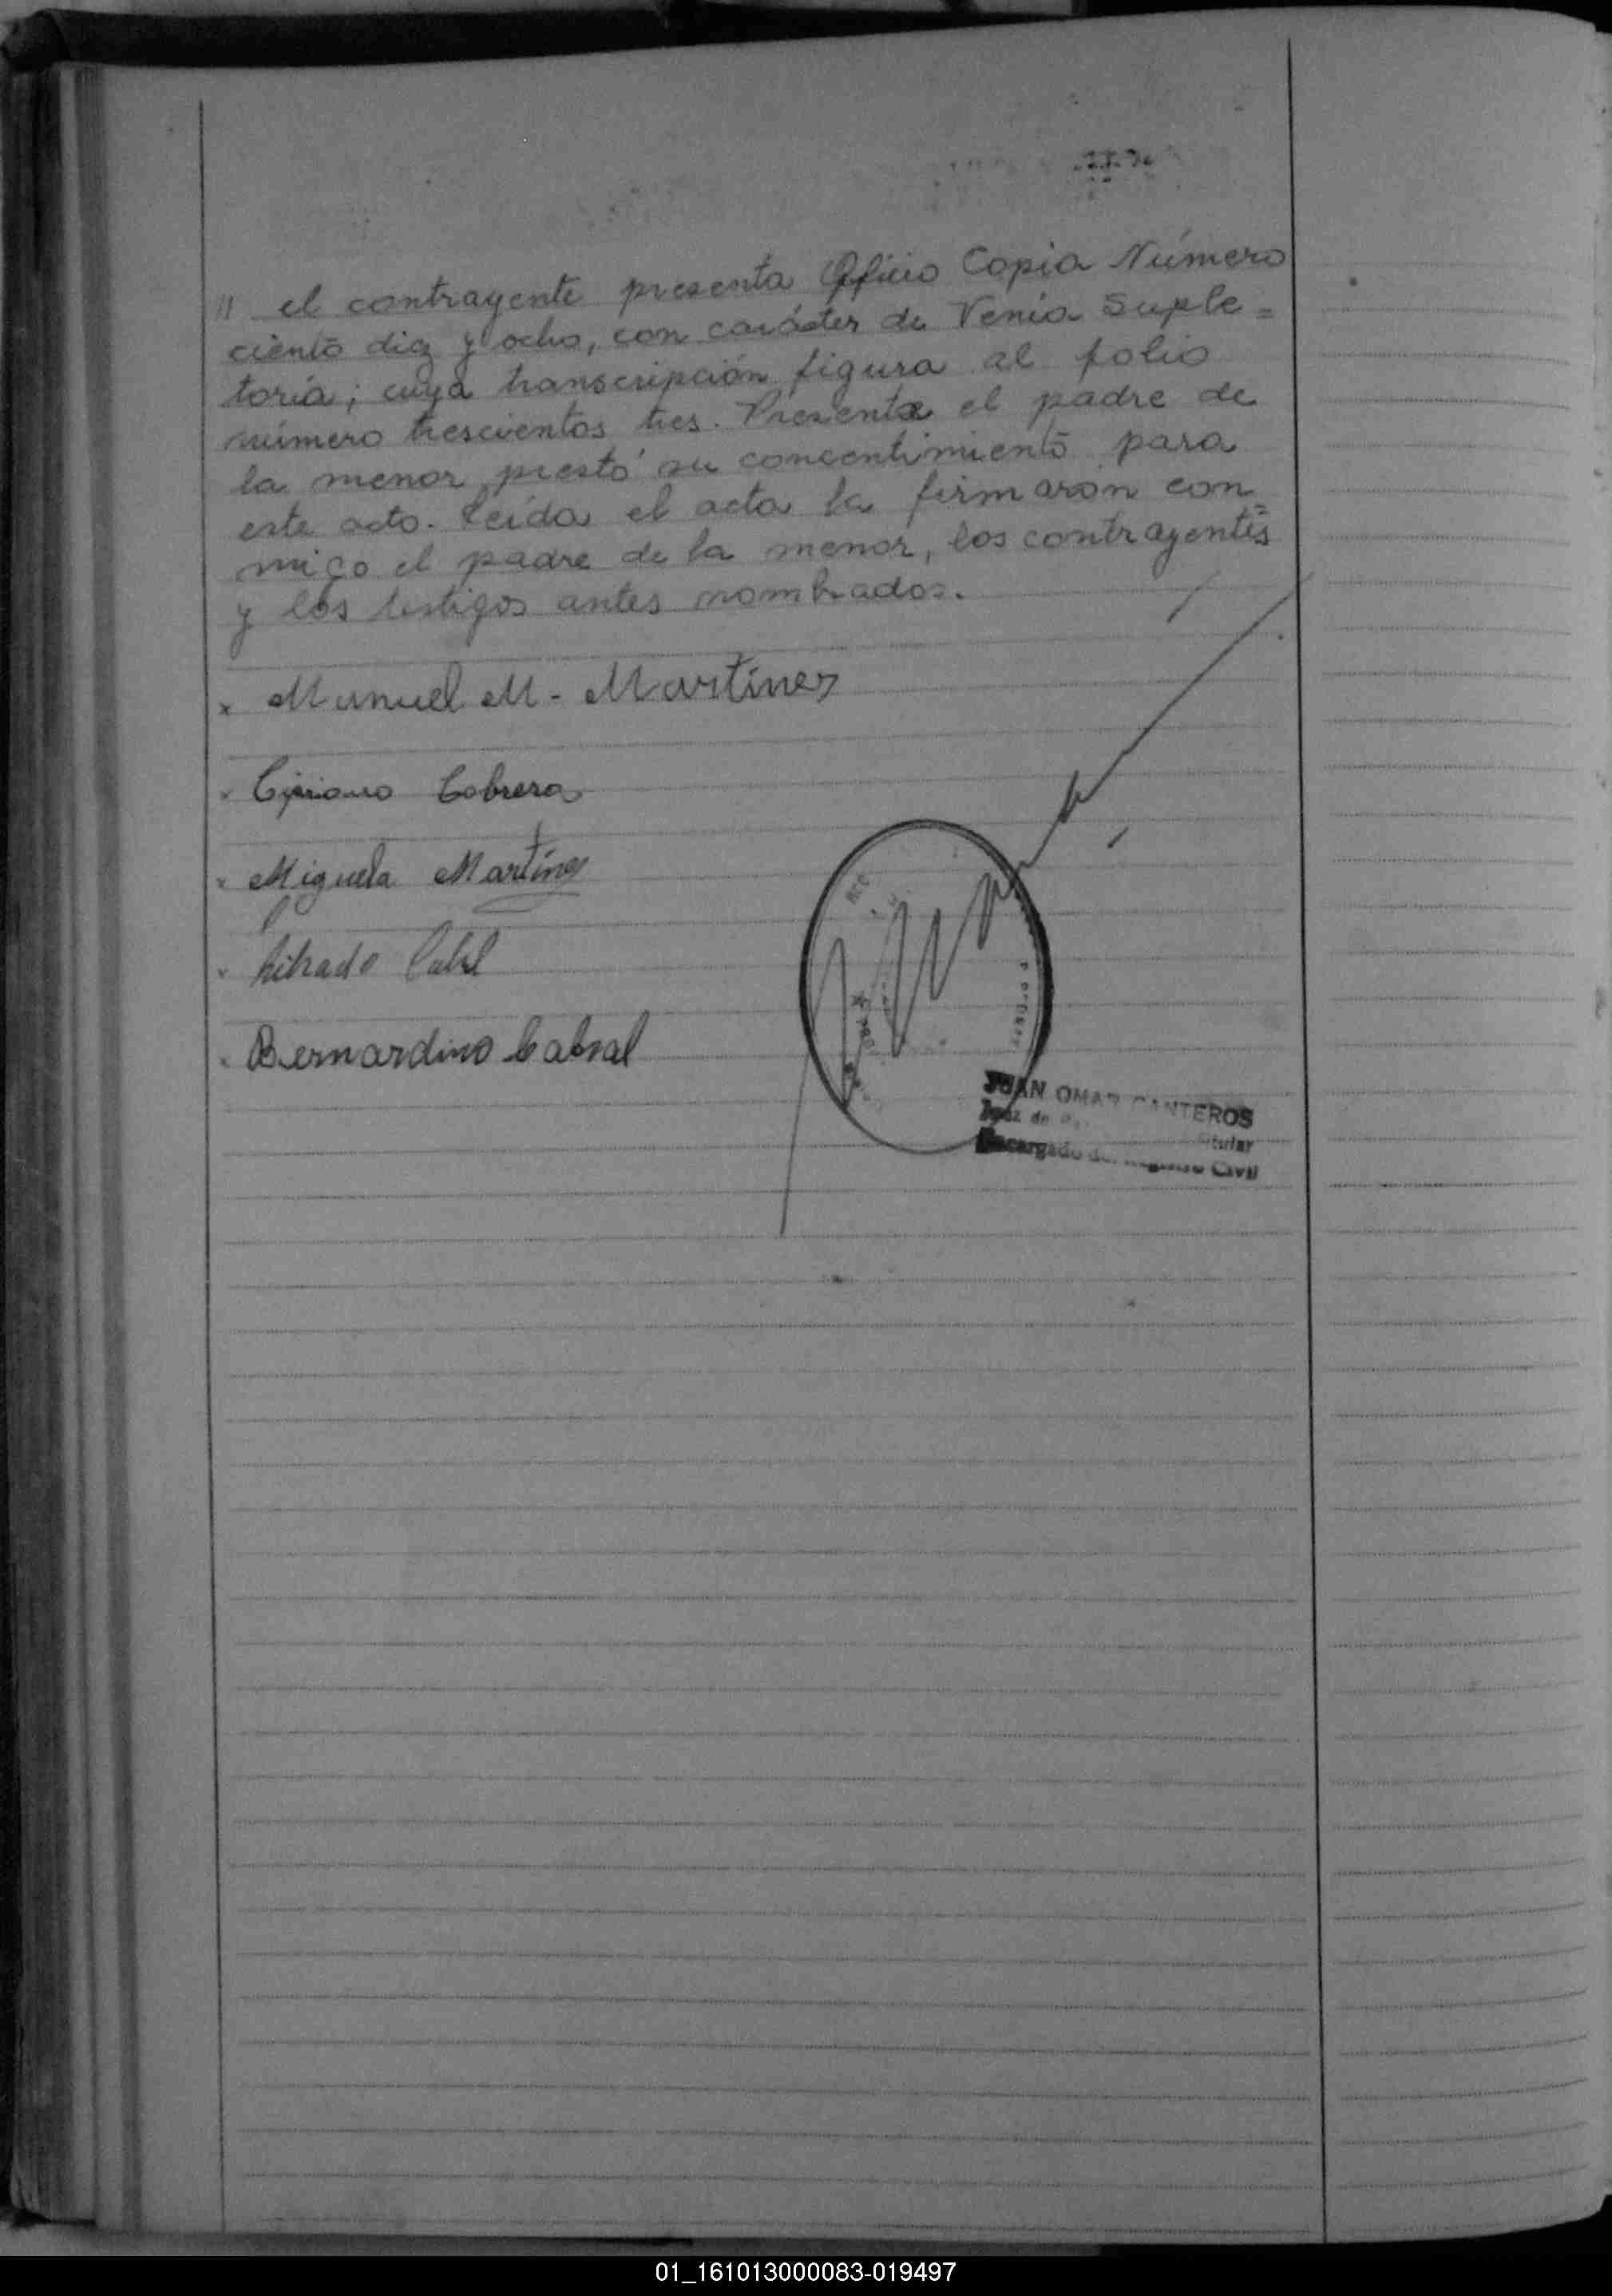 // el contrayente presenta Oficio Copia Número
ciento diez y ocho, con carácter de Venia Suple=
toria; cuya transcripción figura al folio
número trescientos tres. Presente el padre de
la menor prestó su concentimiento para
este acto. Leída el acta la firmaron con=
migo el padre de la menor, los contrayentes
y los testigos antes nombrados.
x Manuel M. Martinez
x Cipriano Cabrera
x Miguela Martínez
x Librado Cabral
x Bernardino Cabral
JUAN OMAR CANTEROS
Juez de Titular
Encargado del Registro Civil
01_161013000083-019497